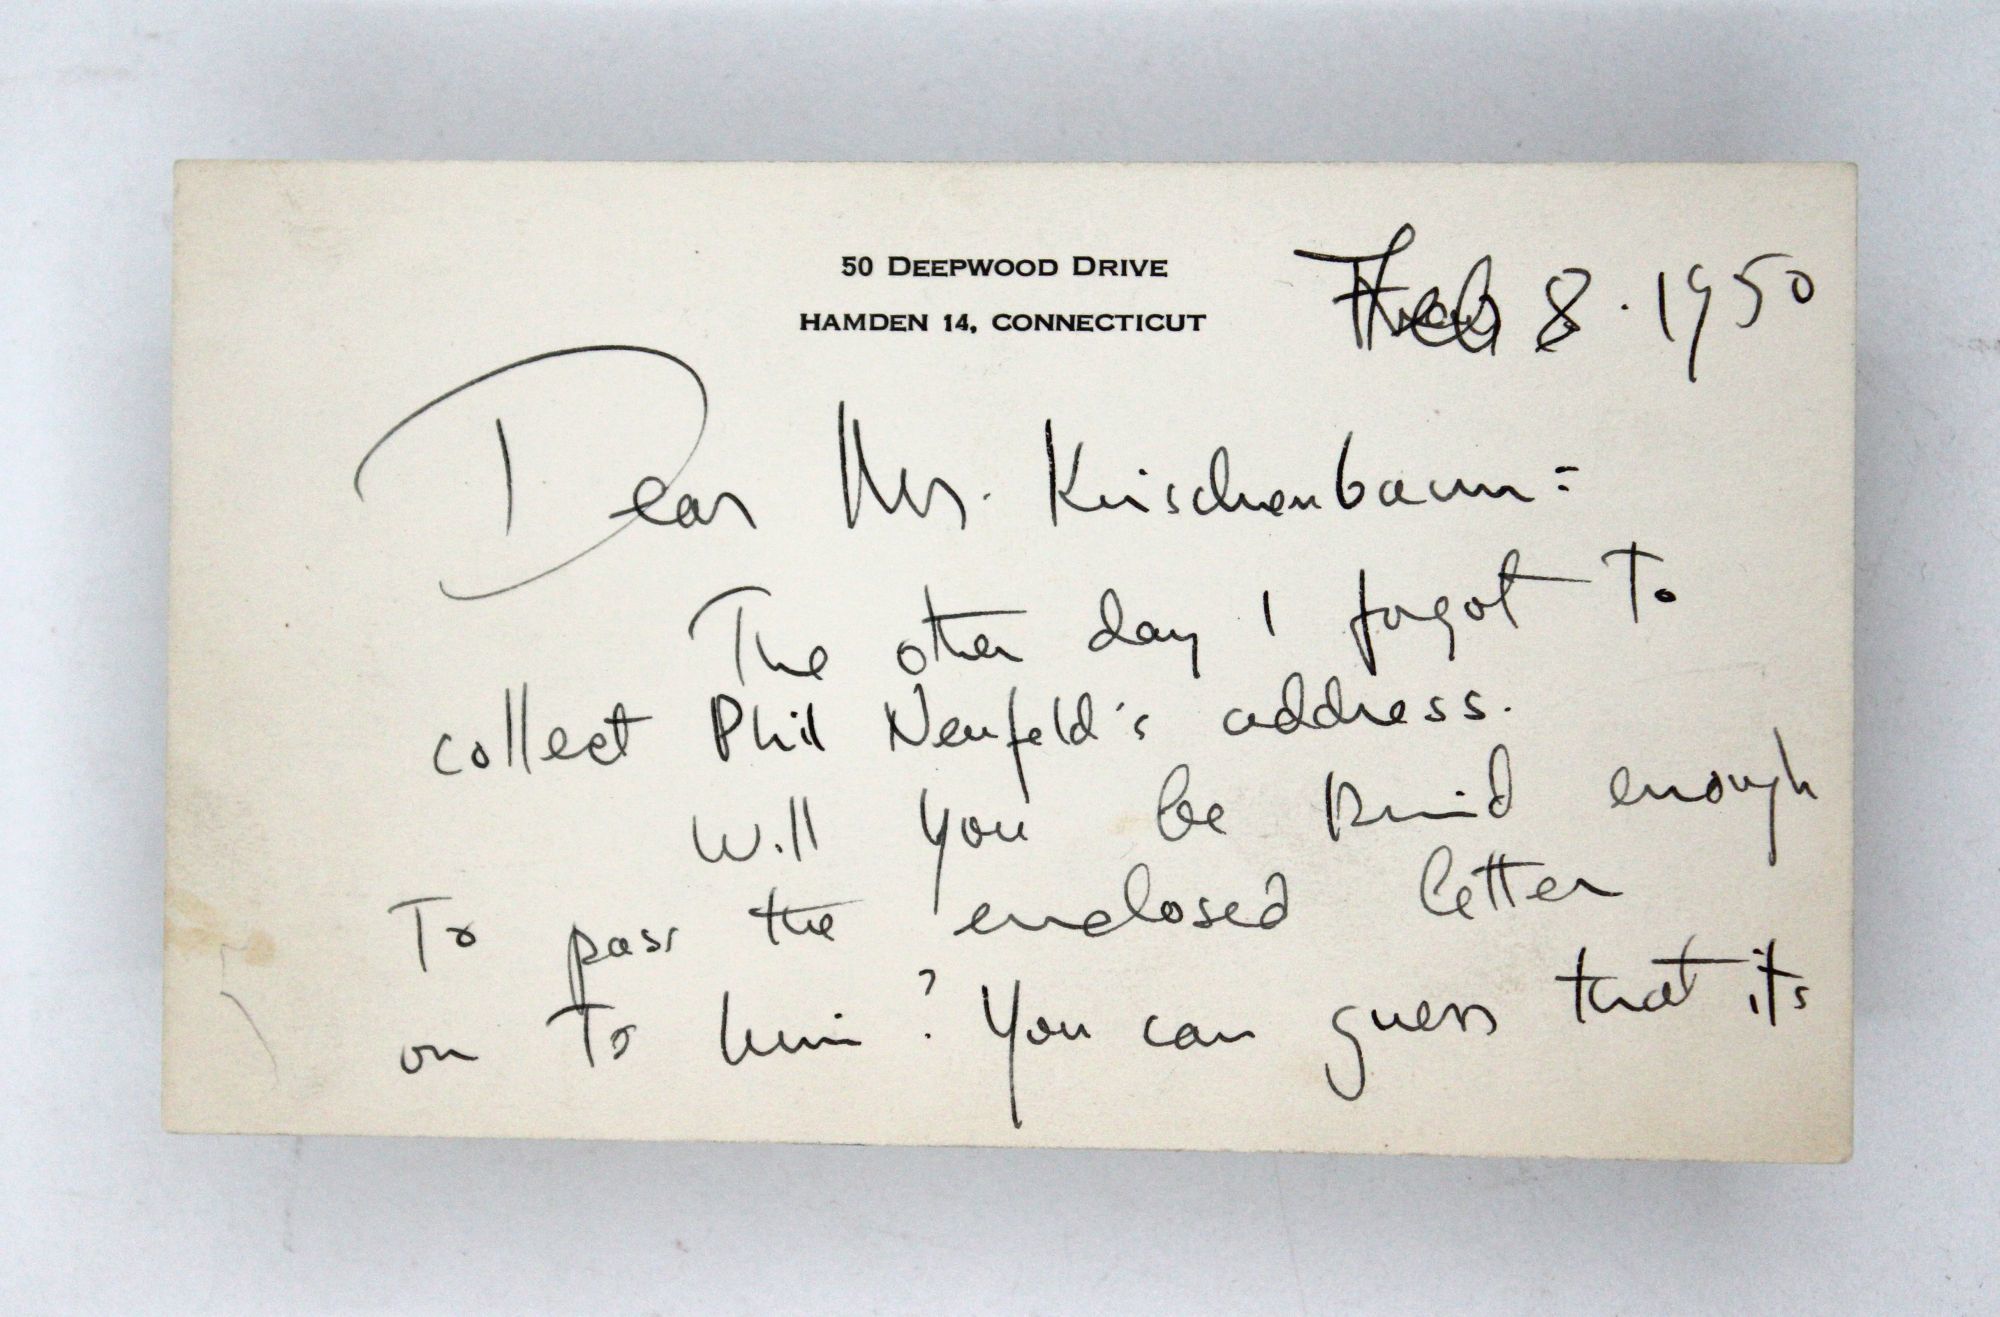 50 DEEPWOOD DRIVE
HAMDEN 14, CONNECTICUT
Feb 8. 1950
Dear Mrs. Kirschenbaum =
The other day I forgot to
collect Phil Neufeld's address.
Will you be kind enough
To pass the enclosed letter
on To him? You can guess that it's